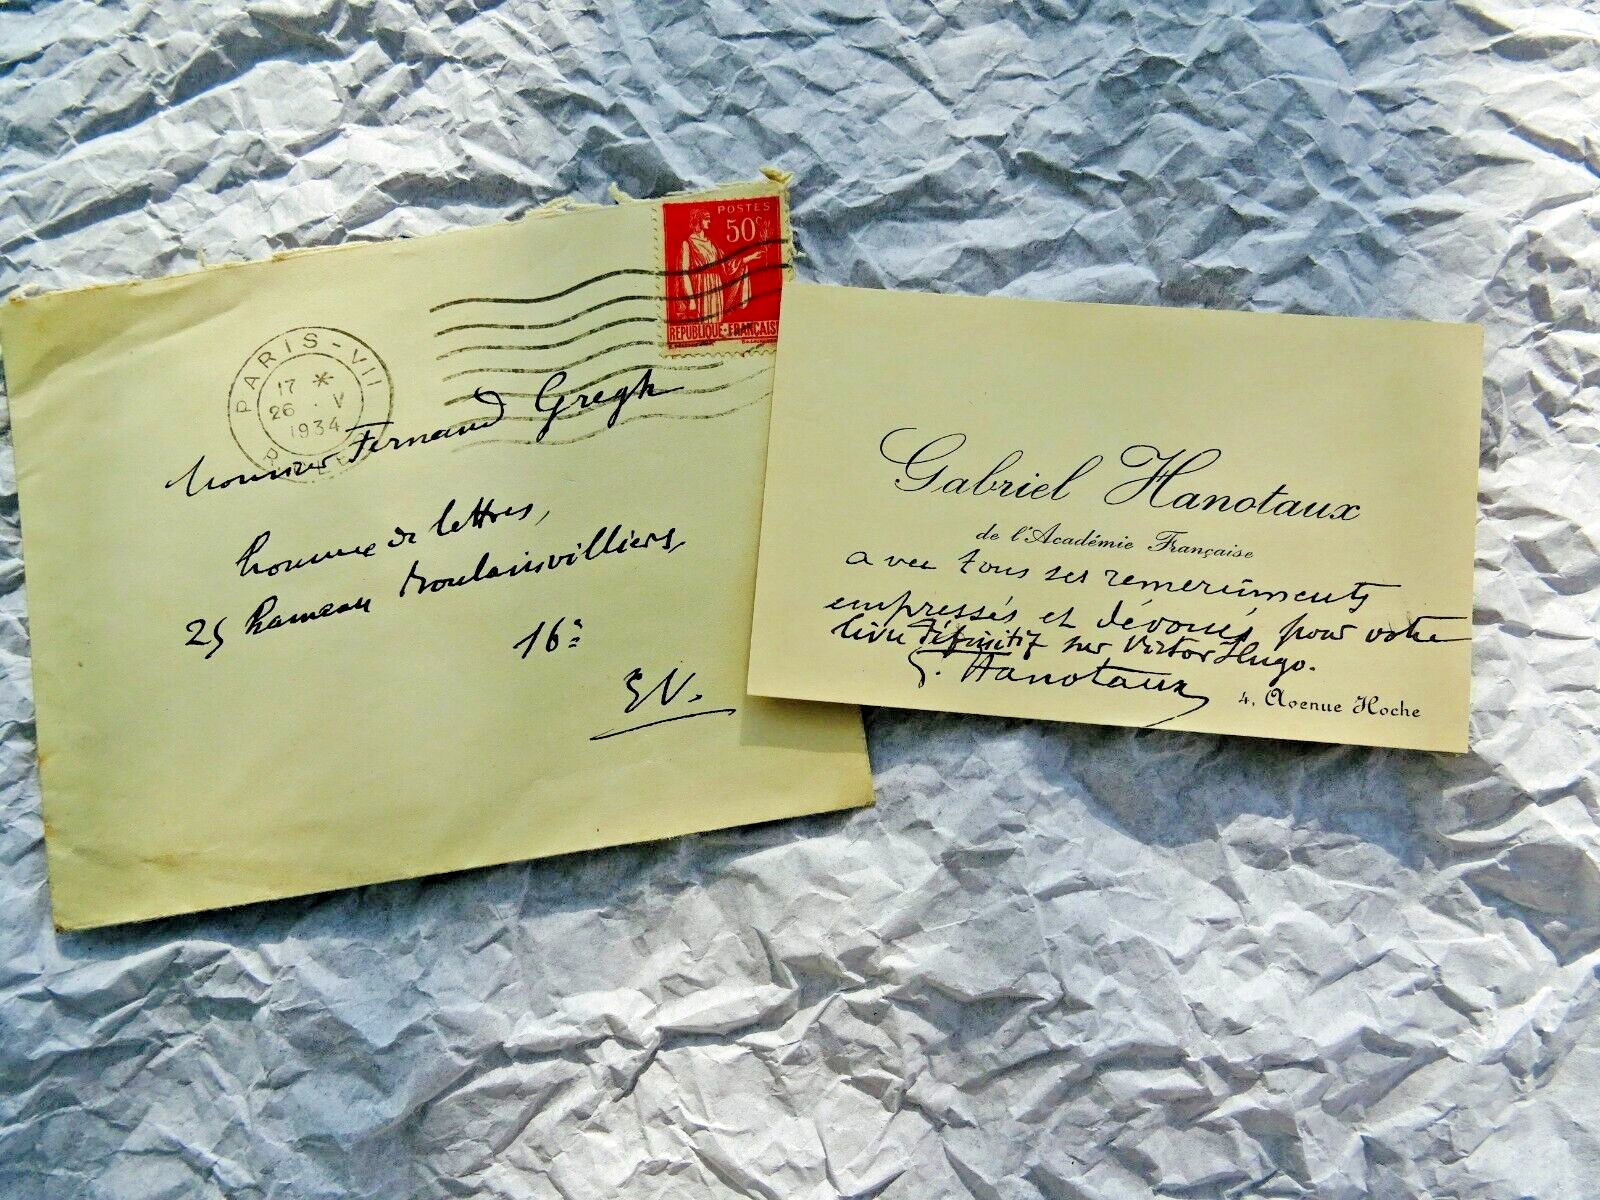 PARIS-VII
17 *
26 · V
1934
POSTES
50c
REPUBLIQUE-FRANÇAISE
Monsieur Fernand Gregh
homme de lettres,
25 Hameau Boulainvilliers,
16e
E.V.
Gabriel Hanotaux
de l'Académie Française
avec tous ses remerciments
empressés et dévoués, pour votre
livre définitif sur Victor Hugo.
G. Hanotaux
4, Avenue Hoche